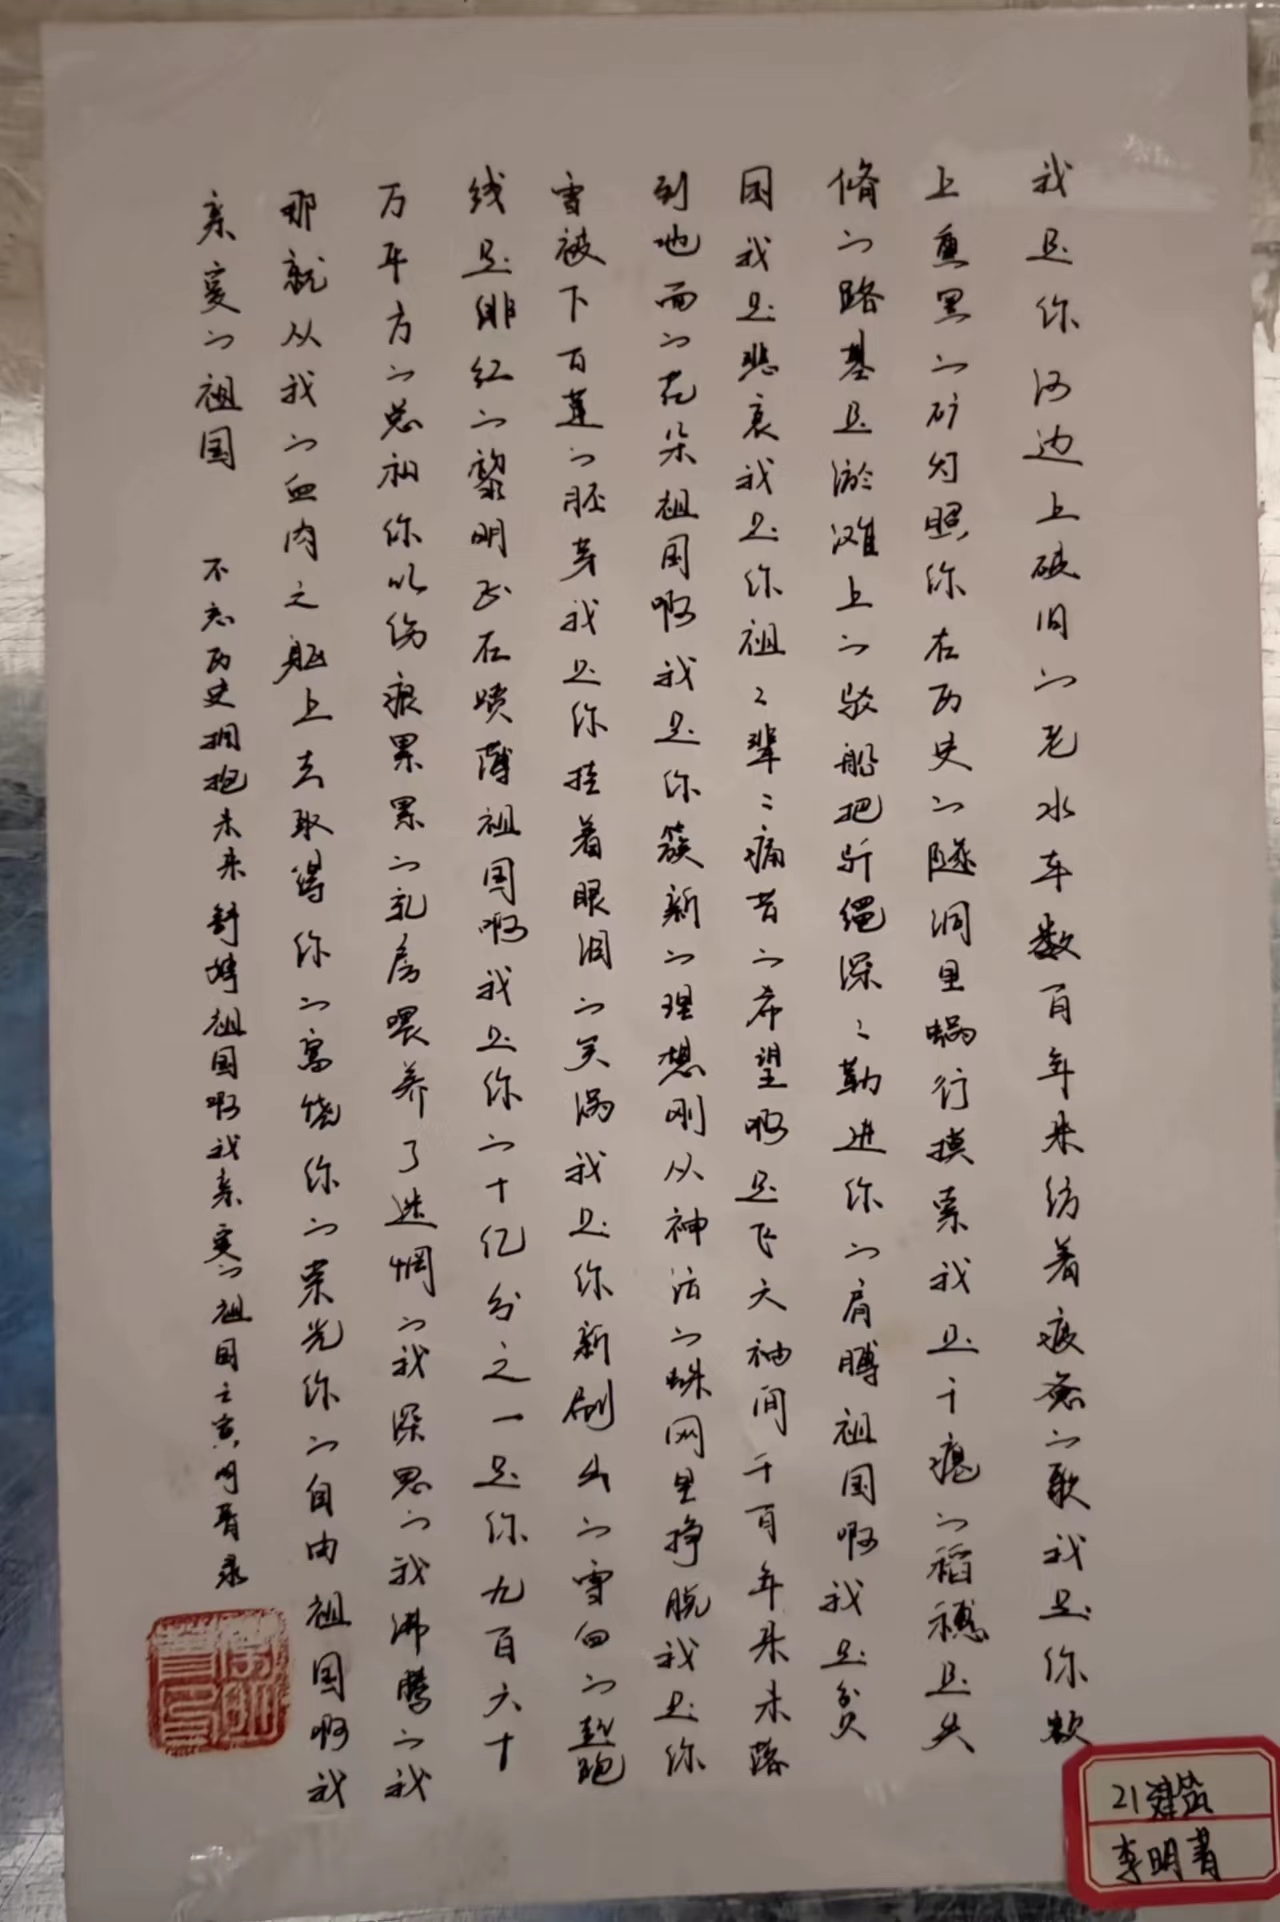 我是你河边上破旧的老水车数百年来纺着疲惫的歌我是你额
上熏黑的矿灯照你在历史的隧洞里蜗行摸索我是干瘪的稻穗是失
修的路基是淤滩上的驳船把纤绳深〻勒进你的肩膊祖国啊我是贫
困我是悲哀我是你祖〻辈〻痛苦的希望啊是飞天袖间千百年来未落
到地面的花朵祖国啊我是你簇新的理想刚从神话的蛛网里挣脱我是你
雪被下百莲的胚芽我是你挂着眼泪的笑涡我是你新刷出的雪白的起跑
线是绯红的黎明正在喷薄祖国啊我是你的十亿分之一是你九百六十
万平方的总和你以伤痕累累的乳房喂养了迷惘的我深思的我沸腾的我
那就从我的血肉之躯上去取得你的富饶你的荣光你的自由祖国啊我
亲爱的祖国
不忘历史拥抱未来舒婷祖国啊我亲爱的祖国壬寅明青录
21建筑
李明青